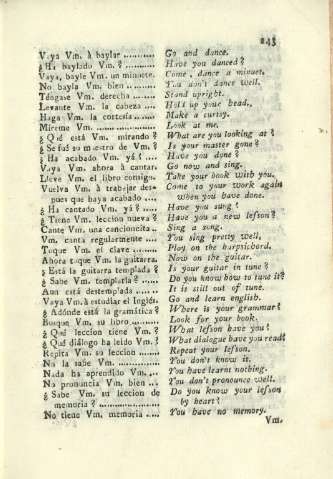 243
Vaya Vm. à baylar ........... Go and dance.
¿ Ha baylado Vm. ? .......... Have you danced ?
Vaya, bayle Vm. un minuete. Come, dance a minuet.
No bayla Vm. bien ........... You don't dance well.
Téngase Vm. derecha ...... Stand upright.
Levante Vm. la cabeza .... Hold up your head.
Haga Vm. la cortesía ....... Make a curtsy.
Mireme Vm. ................... Look at me.
¿ Qué está Vm. mirando ? What are you looking at ?
¿ Se fué su maestro de Vm. ? Is your master gone ?
¿ Ha acabado Vm. yá ? .... Have you done ?
Vaya Vm. ahora à cantar. Go now and sing.
Lleve Vm. el libro consigo. Take your book with you.
Vuelva Vm. à trabajar des- Come to your work again
pues que haya acabado .... when you have done.
¿ Ha cantado Vm. yá ? ..... Have you sung ?
¿ Tiene Vm. leccion nueva ? Have you a new lefson ?
Cante Vm. una cancioncita .. Sing a song.
Vm. canta regularmente .... You sing pretty well.
Toque Vm. el clave .......... Play on the harpsichord.
Ahora toque Vm. la guitarra. Now on the guitar.
¿ Está la guitarra templada ? Is your guitar in tune ?
¿ Sabe Vm. templarla ? ...... Do you know how to tune it ?
Aun está destemplada ...... It is still out of tune.
Vaya Vm. à estudiar el Inglés. Go and learn english.
¿ Adónde está la gramática ? Where is your grammar ?
Busque Vm. su libro ......... Look for your book.
¿ Qué leccion tiene Vm. ? What lefson have you ?
¿ Qué diálogo ha leido Vm. ? What dialogue have you read ?
Repita Vm. su leccion ...... Repeat your lefson.
No la sabe Vm. ............... You don't know it.
Nada ha aprendido Vm. ... You have learnt nothing.
No pronuncia Vm. bien ... You don't pronounce well.
¿ Sabe Vm. su leccion de Do you know your lefson
memoria ? ..................... by heart ?
No tiene Vm. memoria ..... You have no memory.
Vm.